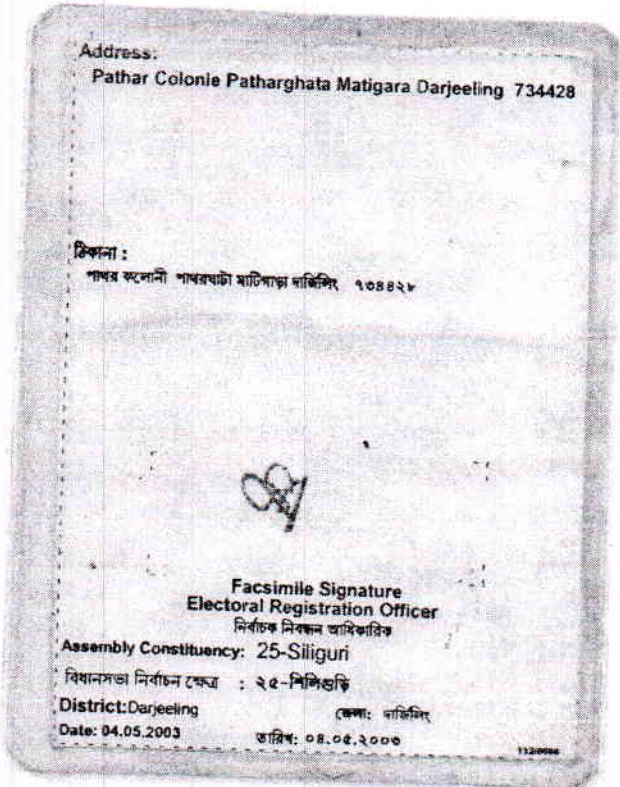 Address:
Pathar Colonie Patharghata Matigara Darjeeling 734428
ঠিকানা :
পাথর কলোনী পাথরঘাটা মাটিগাড়া দার্জিলিং ৭৩৪৪২৮
Facsimile Signature
Electoral Registration Officer
নির্বাচক নিবন্ধন আধিকারিক
Assembly Constituency: 25-Siliguri
বিধানসভা নির্বাচন ক্ষেত্র : ২৫-শিলিগুড়ি
District:Darjeeling জেলা: দার্জিলিং
Date: 04.05.2003 তারিখ: ০৪.০৫.২০০৩